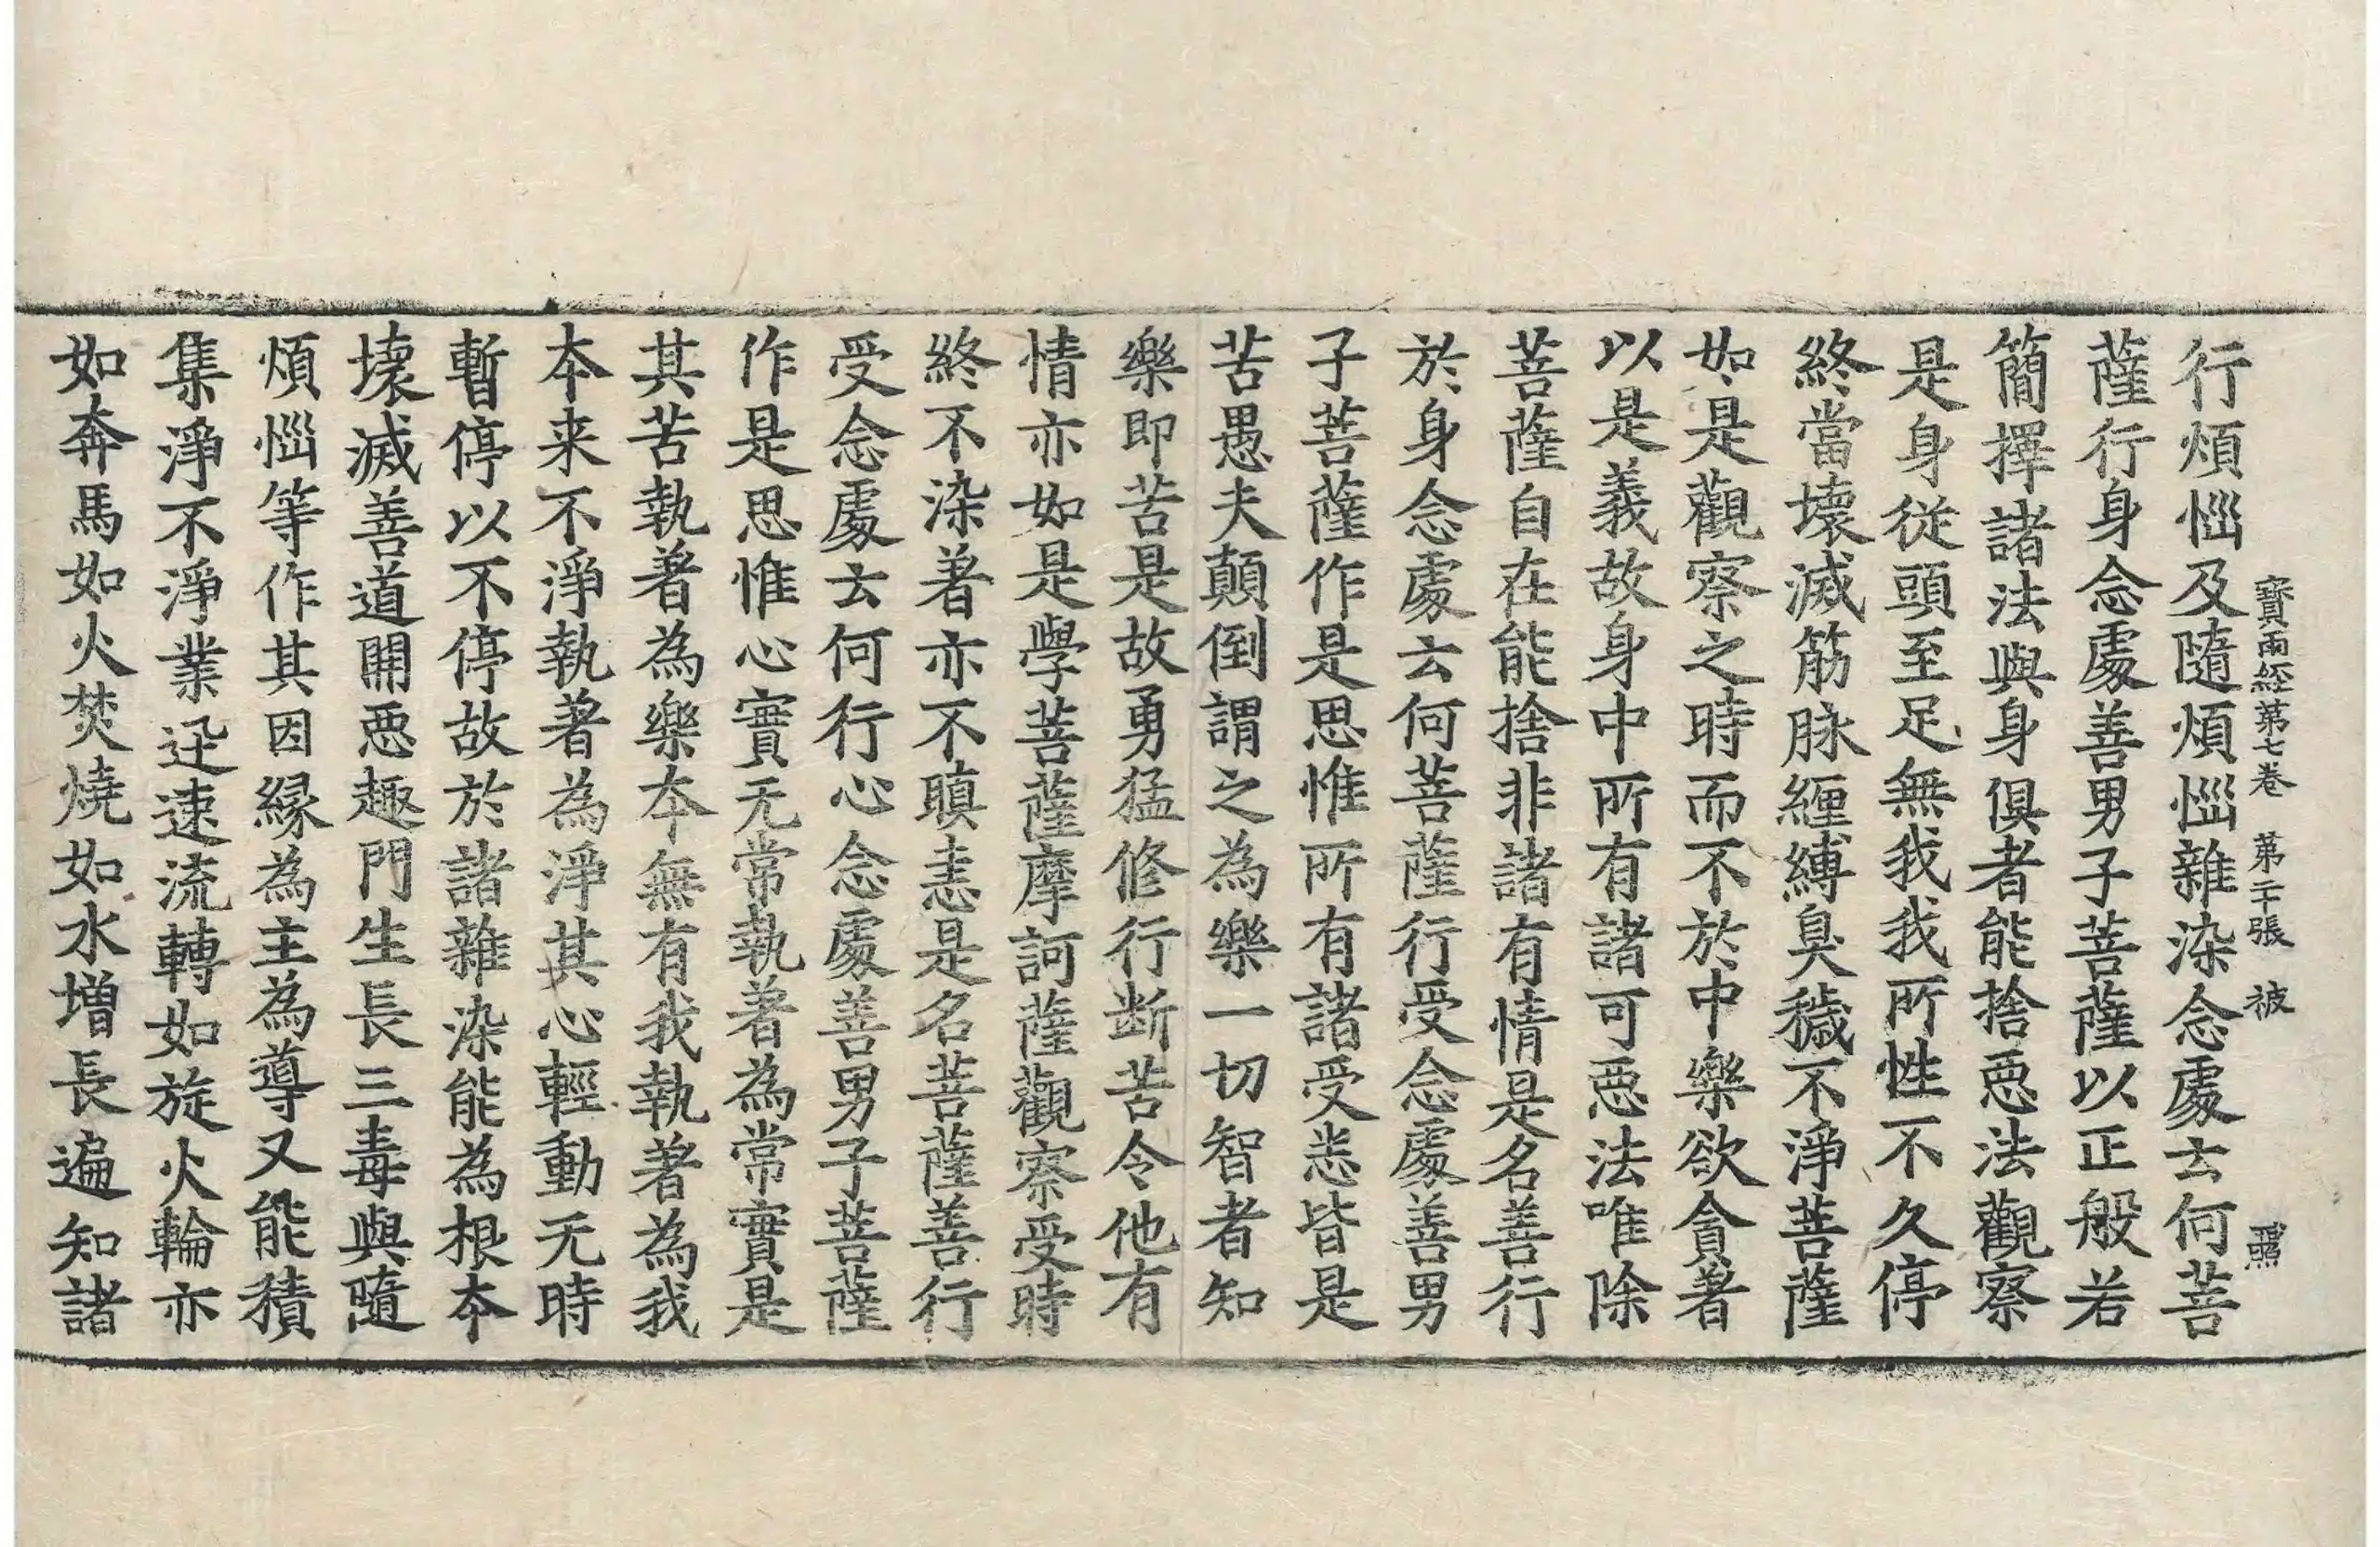 寶雨經第七卷 第二十張 被
行煩惱及隨煩惱雜染念處云何菩
薩行身念處善男子菩薩以正般若
簡擇諸法與身俱者能捨惡法觀察
是身從頭至足無我我所性不久停
終當壞滅筋脉纏縛臭穢不淨菩薩
如是觀察之時而不於中樂欲貪著
以是義故身中所有諸可惡法唯除
菩薩自在能捨非諸有情是名善行
於身念處云何菩薩行受念處善男
子菩薩作是思惟所有諸受悉皆是
苦愚夫顛倒謂之為樂一切智者知
樂即苦是故勇猛修行断苦令他有
情亦如是學菩薩摩訶薩觀察受時
終不染著亦不瞋恚是名菩薩善行
受念處云何行心念處善男子菩薩
作是思惟心實无常執著為常實是
其苦執著為樂夲無有我執著為我
夲来不淨執著為淨其心輕動无時
暫停以不停故於諸雜染能為根夲
壞滅善道開惡趣門生長三毒與隨
煩惱等作其因緣為主為導又能積
集淨不淨業迅速流轉如旋火輪亦
如奔馬如火焚燒如水增長遍知諸